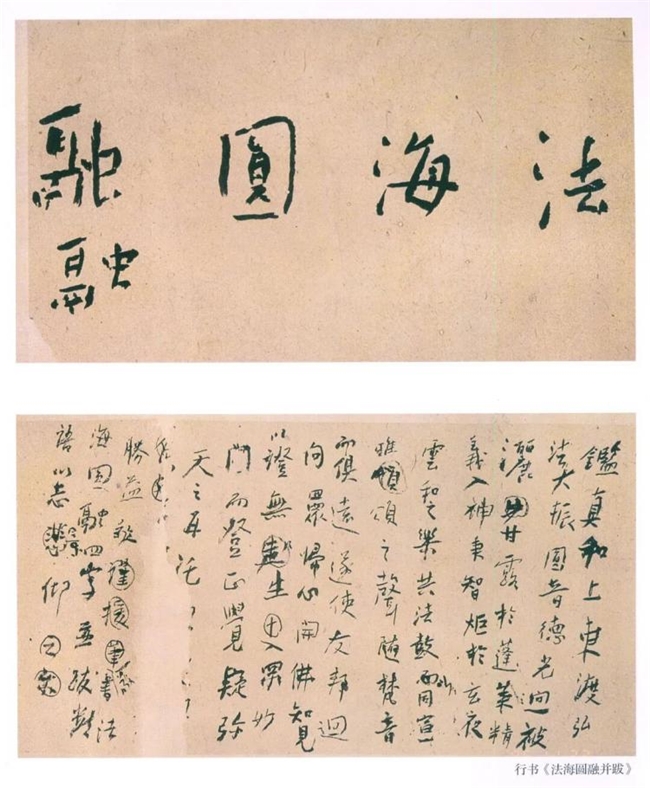 法海圓融
融
鑑真和上東渡弘
法大振圓音德光迥被
灑甘露於蓬萊精
義入神秉智炬於玄夜
雲和之樂共法鼓而同宣
雅頌之聲隨梵音
而俱遠遂使友邦迴
向眾歸心開佛知見
以證無生入眾妙
門而登正覺疑弥
天之再
勝益敬謹援筆書法
海圓融四字並跋數
語以志景仰
行书《法海圓融并跋》